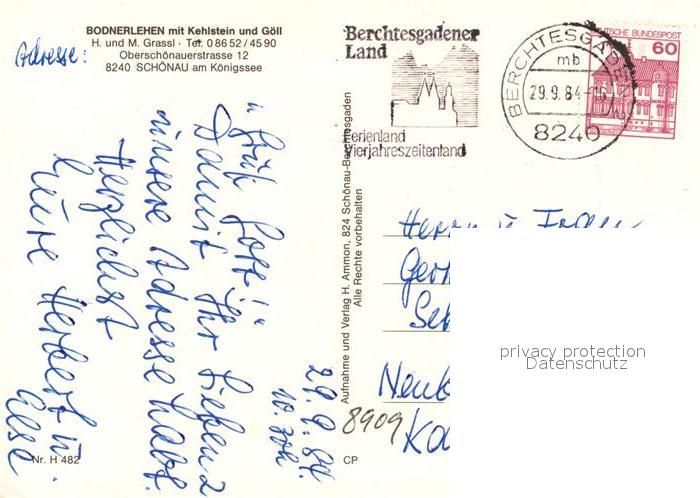 BODNERLEHEN mit Kehlstein und Göll
H. und M. Grassl · Tel. 0 86 52 / 45 90
Oberschönauerstrasse 12
8240 SCHÖNAU am Königssee
Adresse:
"Grüß Gott!"
Damit Ihr Lieben 2
unsere Adresse habt.
Herzlichst
Eure Herbert u.
Ilse.
29.9.84.
10.30h
Nr. H 482
CP
Aufnahme und Verlag H. Ammon, 824 Schönau-Berchtesgaden
Alle Rechte vorbehalten
Berchtesgadener
Land
Ferienland
Vierjahreszeitenland
BERCHTESGADEN
mb
29.9.84-16
8240
DEUTSCHE BUNDESPOST
60
Herrn u. Frau
Neu
8909
privacy protection
Datenschutz